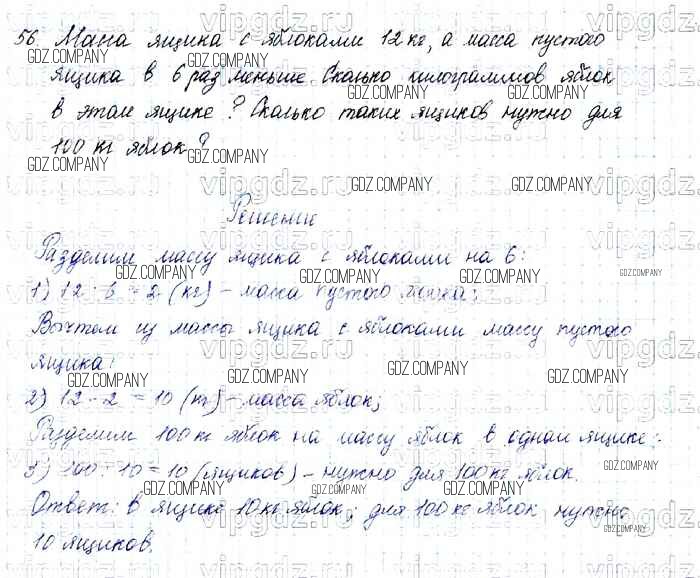 56. Масса ящика с яблоками 12 кг, а масса пустого
ящика в 6 раз меньше. Сколько килограммов яблок
в этом ящике? Сколько таких ящиков нужно для
100 кг яблок?
Решение
Разделим массу ящика с яблоками на 6:
1) 12 : 6 = 2 (кг) – масса пустого ящика;
Вычтем из массы ящика с яблоками массу пустого
ящика:
2) 12 - 2 = 10 (кг) – масса яблок;
Разделим 100 кг яблок на массу яблок в одном ящике:
3) 100 : 10 = 10 (ящиков) – нужно для 100 кг яблок.
Ответ: в ящике 10 кг яблок; для 100 кг яблок нужно
10 ящиков.
vipgdz.ru
GDZ.COMPANY